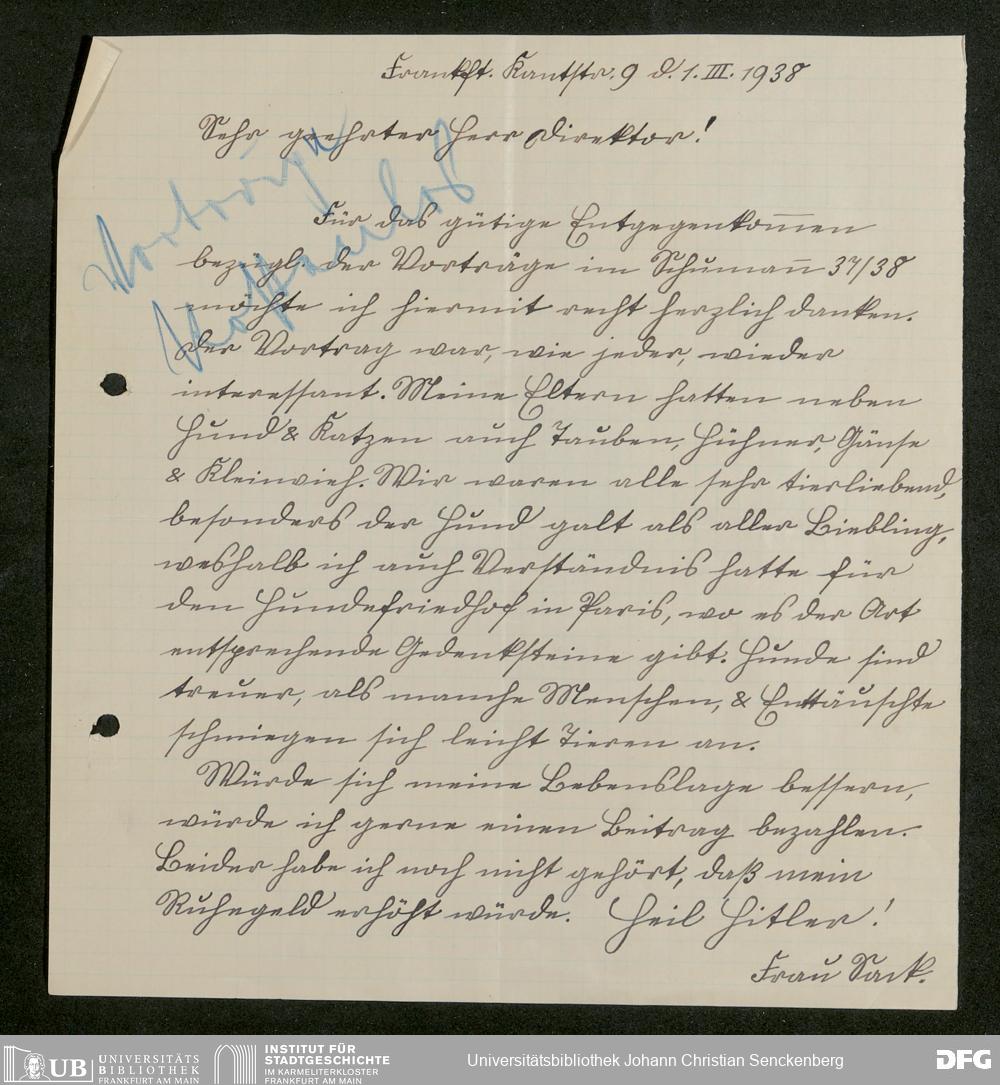 Frankft. Kantstr. 9 d. 1. III. 1938
Sehr geehrter Herr Direktor!
Vorträge
Für das gütige Entgegenkom̅en
bezügl. der Vorträge im Schuman̅ 37/38
möchte ich hiermit recht herzlich danken.
Der Vortrag war, wie jeder, wieder
interessant. Meine Eltern hatten neben
Hund & Katzen auch Tauben, Hühner, Gänse
& Kleinvieh. Wir waren alle sehr tierliebend,
besonders der Hund galt als aller Liebling,
weshalb ich auch Verständnis hatte für
den Hundefriedhof in Paris, wo es der Art
entsprechende Gedenksteine gibt. Hunde sind
treuer, als manche Menschen, & Enttäuschte
schmiegen sich leicht Tieren an.
Würde sich meine Lebenslage bessern,
würde ich gerne einen Beitrag bezahlen.
Leider habe ich noch nicht gehört, daß mein
Ruhegeld erhöht würde. Heil Hitler!
Frau Sack.
UB UNIVERSITÄTS
BIBLIOTHEK
FRANKFURT AM MAIN
INSTITUT FÜR
STADTGESCHICHTE
IM KARMELITERKLOSTER
FRANKFURT AM MAIN
Universitätsbibliothek Johann Christian Senckenberg
DFG